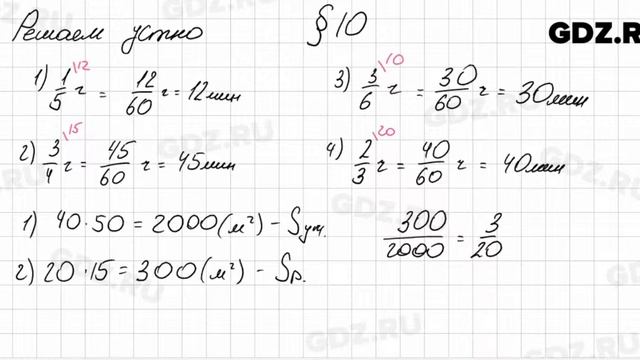 Решаем устно § 10
GDZ.RU
1) 1/5 \12 ч = 12/60 ч = 12 мин
3) 3/6 \10 ч = 30/60 ч = 30 мин
2) 3/4 \15 ч = 45/60 ч = 45 мин
4) 2/3 \20 ч = 40/60 ч = 40 мин
1) 40 · 50 = 2000 (м²) - Sуч.
300/2000 = 3/20
2) 20 · 15 = 300 (м²) - Sр.